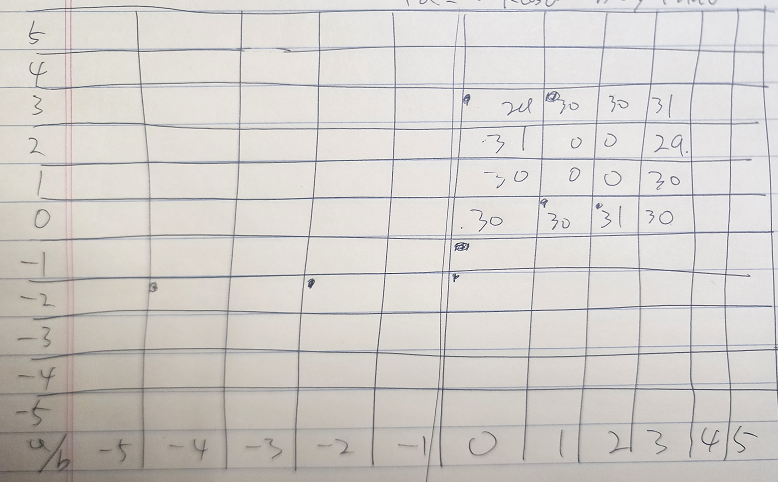 5
4
3 30 30 31
2 31 0 0 29
1 30 0 0 30
0 30 30 31 30
-1
-2
-3
-4
-5
a/b -5 -4 -3 -2 -1 0 1 2 3 4 5